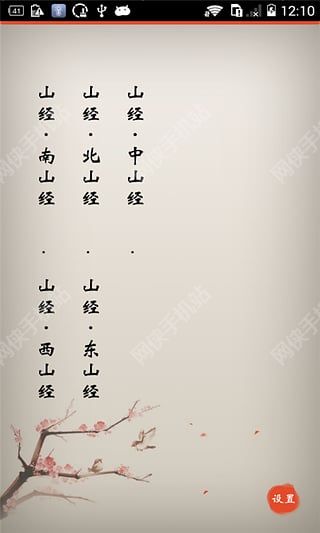 41
12:10
山经·南山经 · 山经·西山经
山经·北山经 · 山经·东山经
山经·中山经 ·
设置
网侠手机站